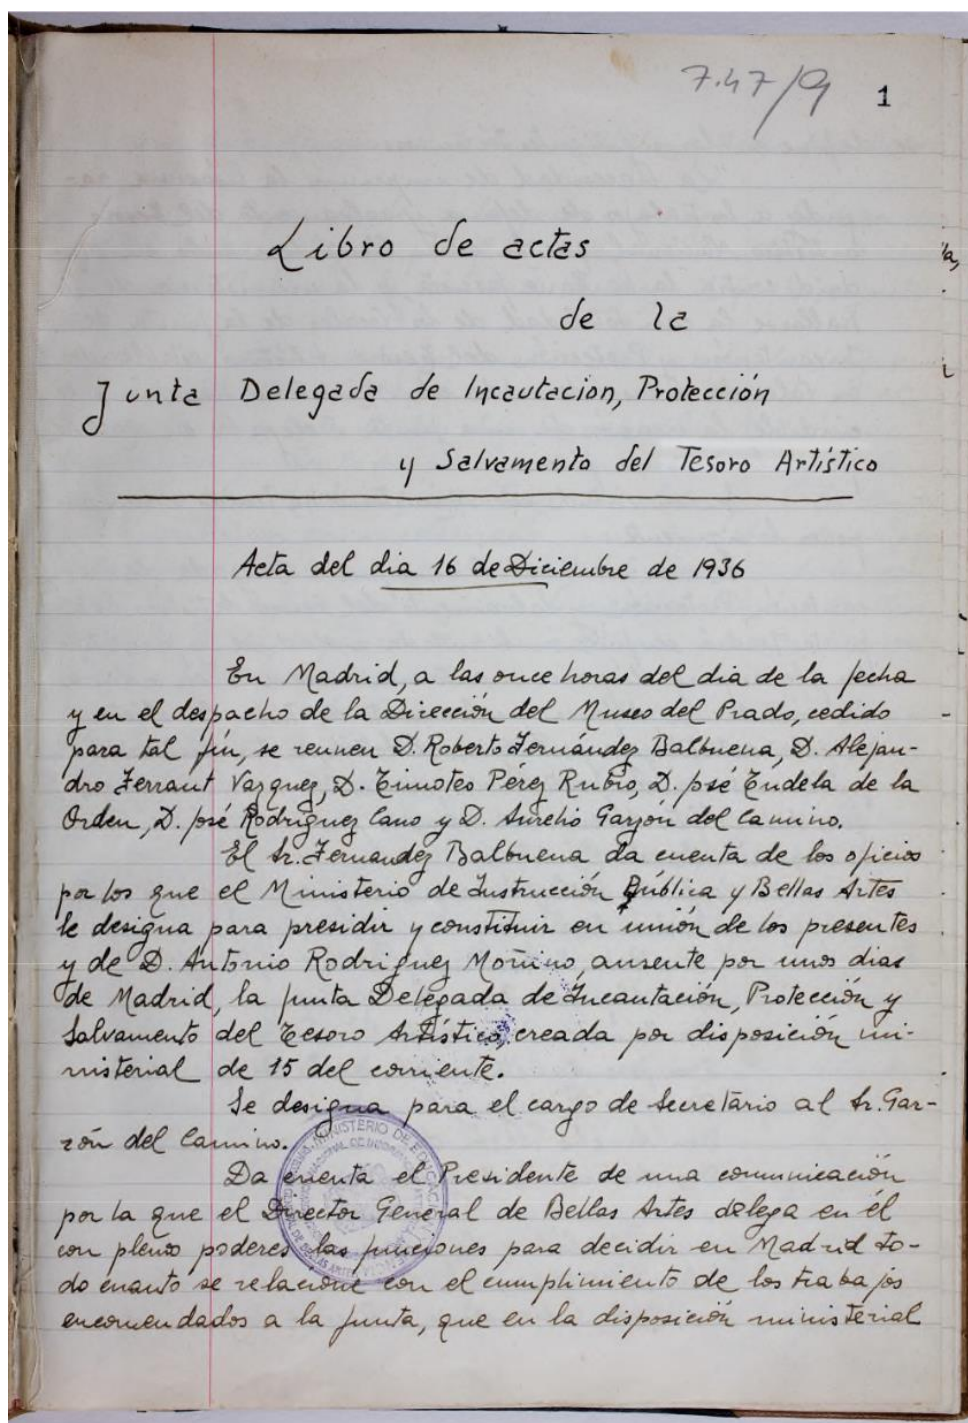 7.47/9
1
Libro de actas
de la
Junta Delegada de Incautacion, Protección
y Salvamento del Tesoro Artístico
Acta del dia 16 de Diciembre de 1936
En Madrid, a las once horas del dia de la fecha
y en el despacho de la Dirección del Museo del Prado, cedido
para tal fin, se reunen D. Roberto Fernández Balbuena, D. Alejan-
dro Ferrant Vazquez, D. Timoteo Pérez Rubio, D. José Tudela de la
Orden, D. José Rodríguez Cano y D. Aurelio Garzón del Camino.
El Sr. Fernandez Balbuena da cuenta de los oficios
por los que el Ministerio de Instrucción Pública y Bellas Artes
le designa para presidir y constituir en unión de los presentes
y de D. Antonio Rodriguez Moñino, ausente por unos dias
de Madrid, la Junta Delegada de Incautación, Protección y
Salvamento del Tesoro Artístico, creada por disposición mi-
nisterial de 15 del corriente.
Se designa para el cargo de Secretario al Sr. Gar-
zón del Camino.
Da cuenta el Presidente de una comunicación
por la que el Director General de Bellas Artes delega en él
con plenos poderes las funciones para decidir en Madrid to-
do cuanto se relacione con el cumplimiento de los trabajos
encomendados a la Junta, que en la disposición ministerial